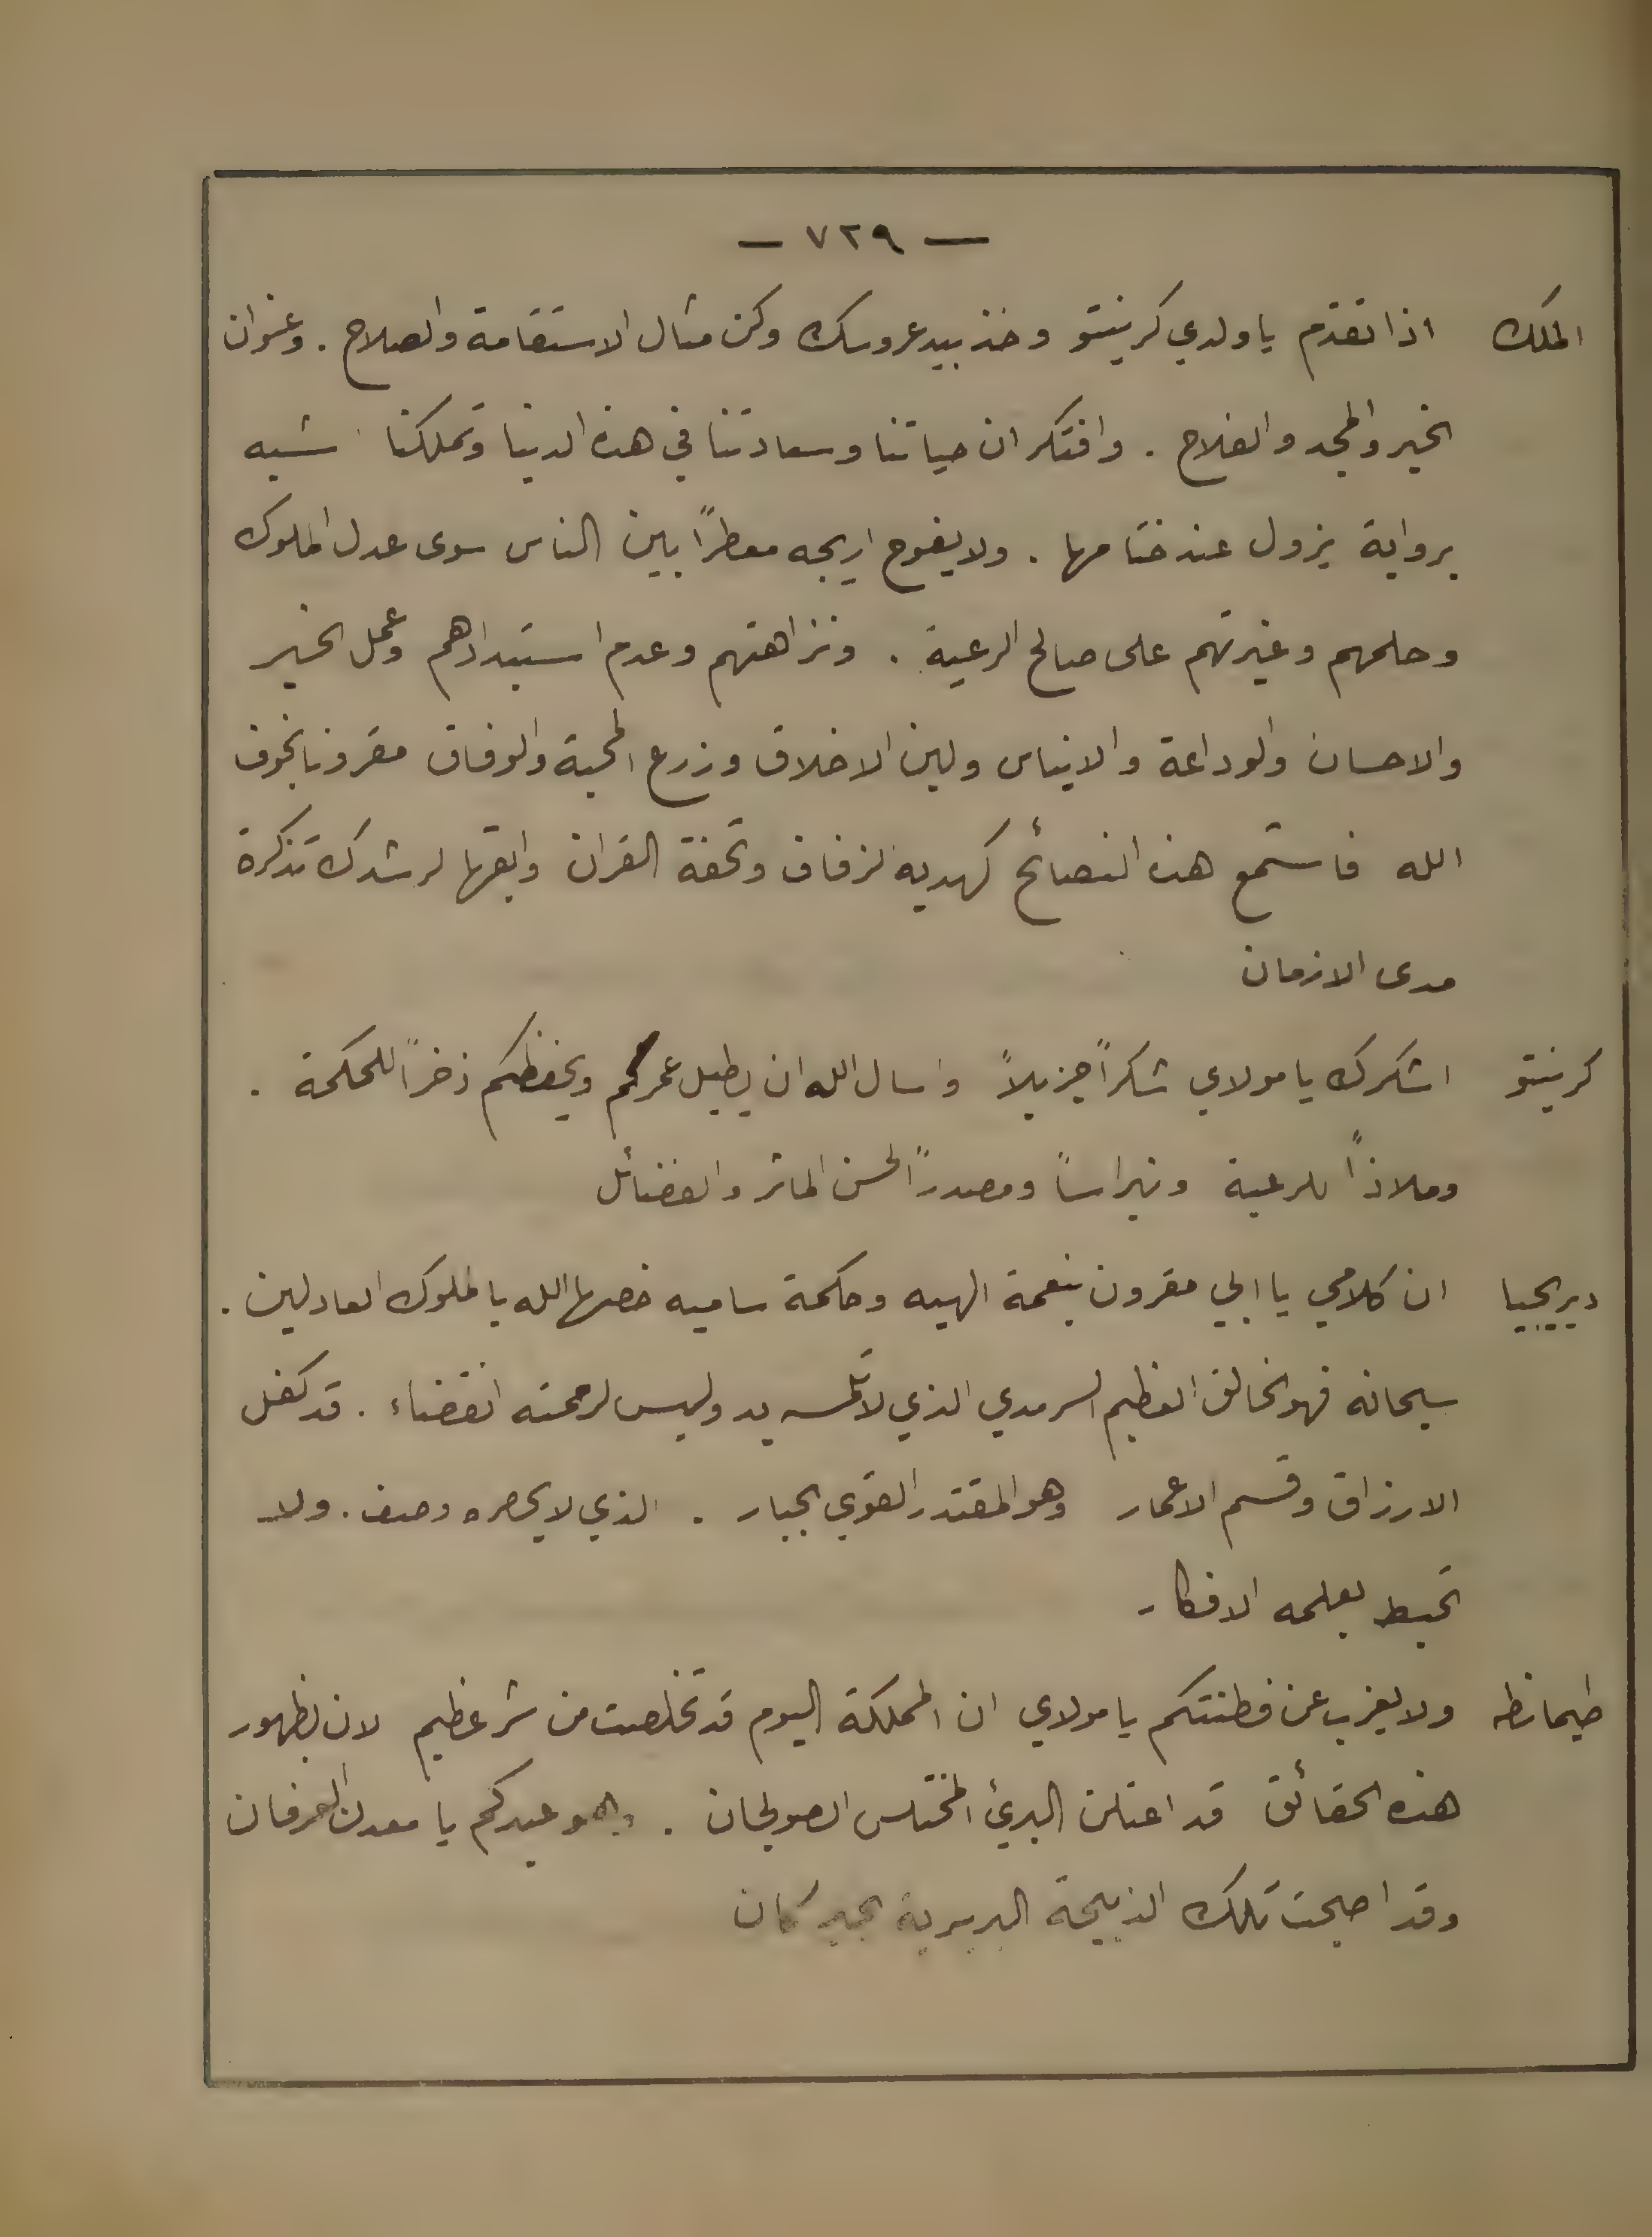 — ٧٢٩ —
الملك اذا تقدم يا ولدي كرينتو وخذ بيد عروسك وكن مثال الاستقامة والصلاح . وعنوان
الخير والمجد والفلاح . وافتكر ان حياتنا وسعادتنا في هذه الدنيا وتملكنا شبيه
برواية يزول عند ختامها . ولا يفوح اريجه معطراً بين الناس سوى عدل الملوك
وحلمهم وغيرتهم على صالح الرعية . ونزاهتهم وعدم استبدادهم وعمل الخير
والاحسان والوداعة والايناس ولين الاخلاق وزرع المحبة والوفاق مقرونا بخوف
الله فاستمع هذه النصائح كهدية لزفاف وتحفة القران وابقها لرشدك تذكرة
مدى الازمان
كرينتو اشكرك يا مولاي شكراً جزيلاً واسال الله ان يطيل عمركم ويحفظكم ذخراً للحكمة .
وملاذاً للرعية ونبراساً ومصدراً لحسن الماثر والفضائل
ديريجيا ان كلامي يا ابي مقرون بنعمة الهيه وحكمة ساميه خصها الله بالملوك العادلين .
سبحانه فهو الخالق العظيم السرمدي الذي لا تلمسه يد وليس لرحمته انقضاء . قد كفل
الارزاق وقسم الاعمار وهو المقتدر القوي الجبار . الذي لا يحصره وصف . ولا
تحيط بعلمه الافكار
طيمانطه ولا يعزب عن فطنتكم يا مولاي ان المملكة اليوم قد تخلصت من شر عظيم لان بظهور
هذه الحقائق قد اعتلن البرئ المختلس الصولجان . وهو عبدكم يا معدن العرفان
وقد اصبحت تلك الذبيحة البربرية بخير كان